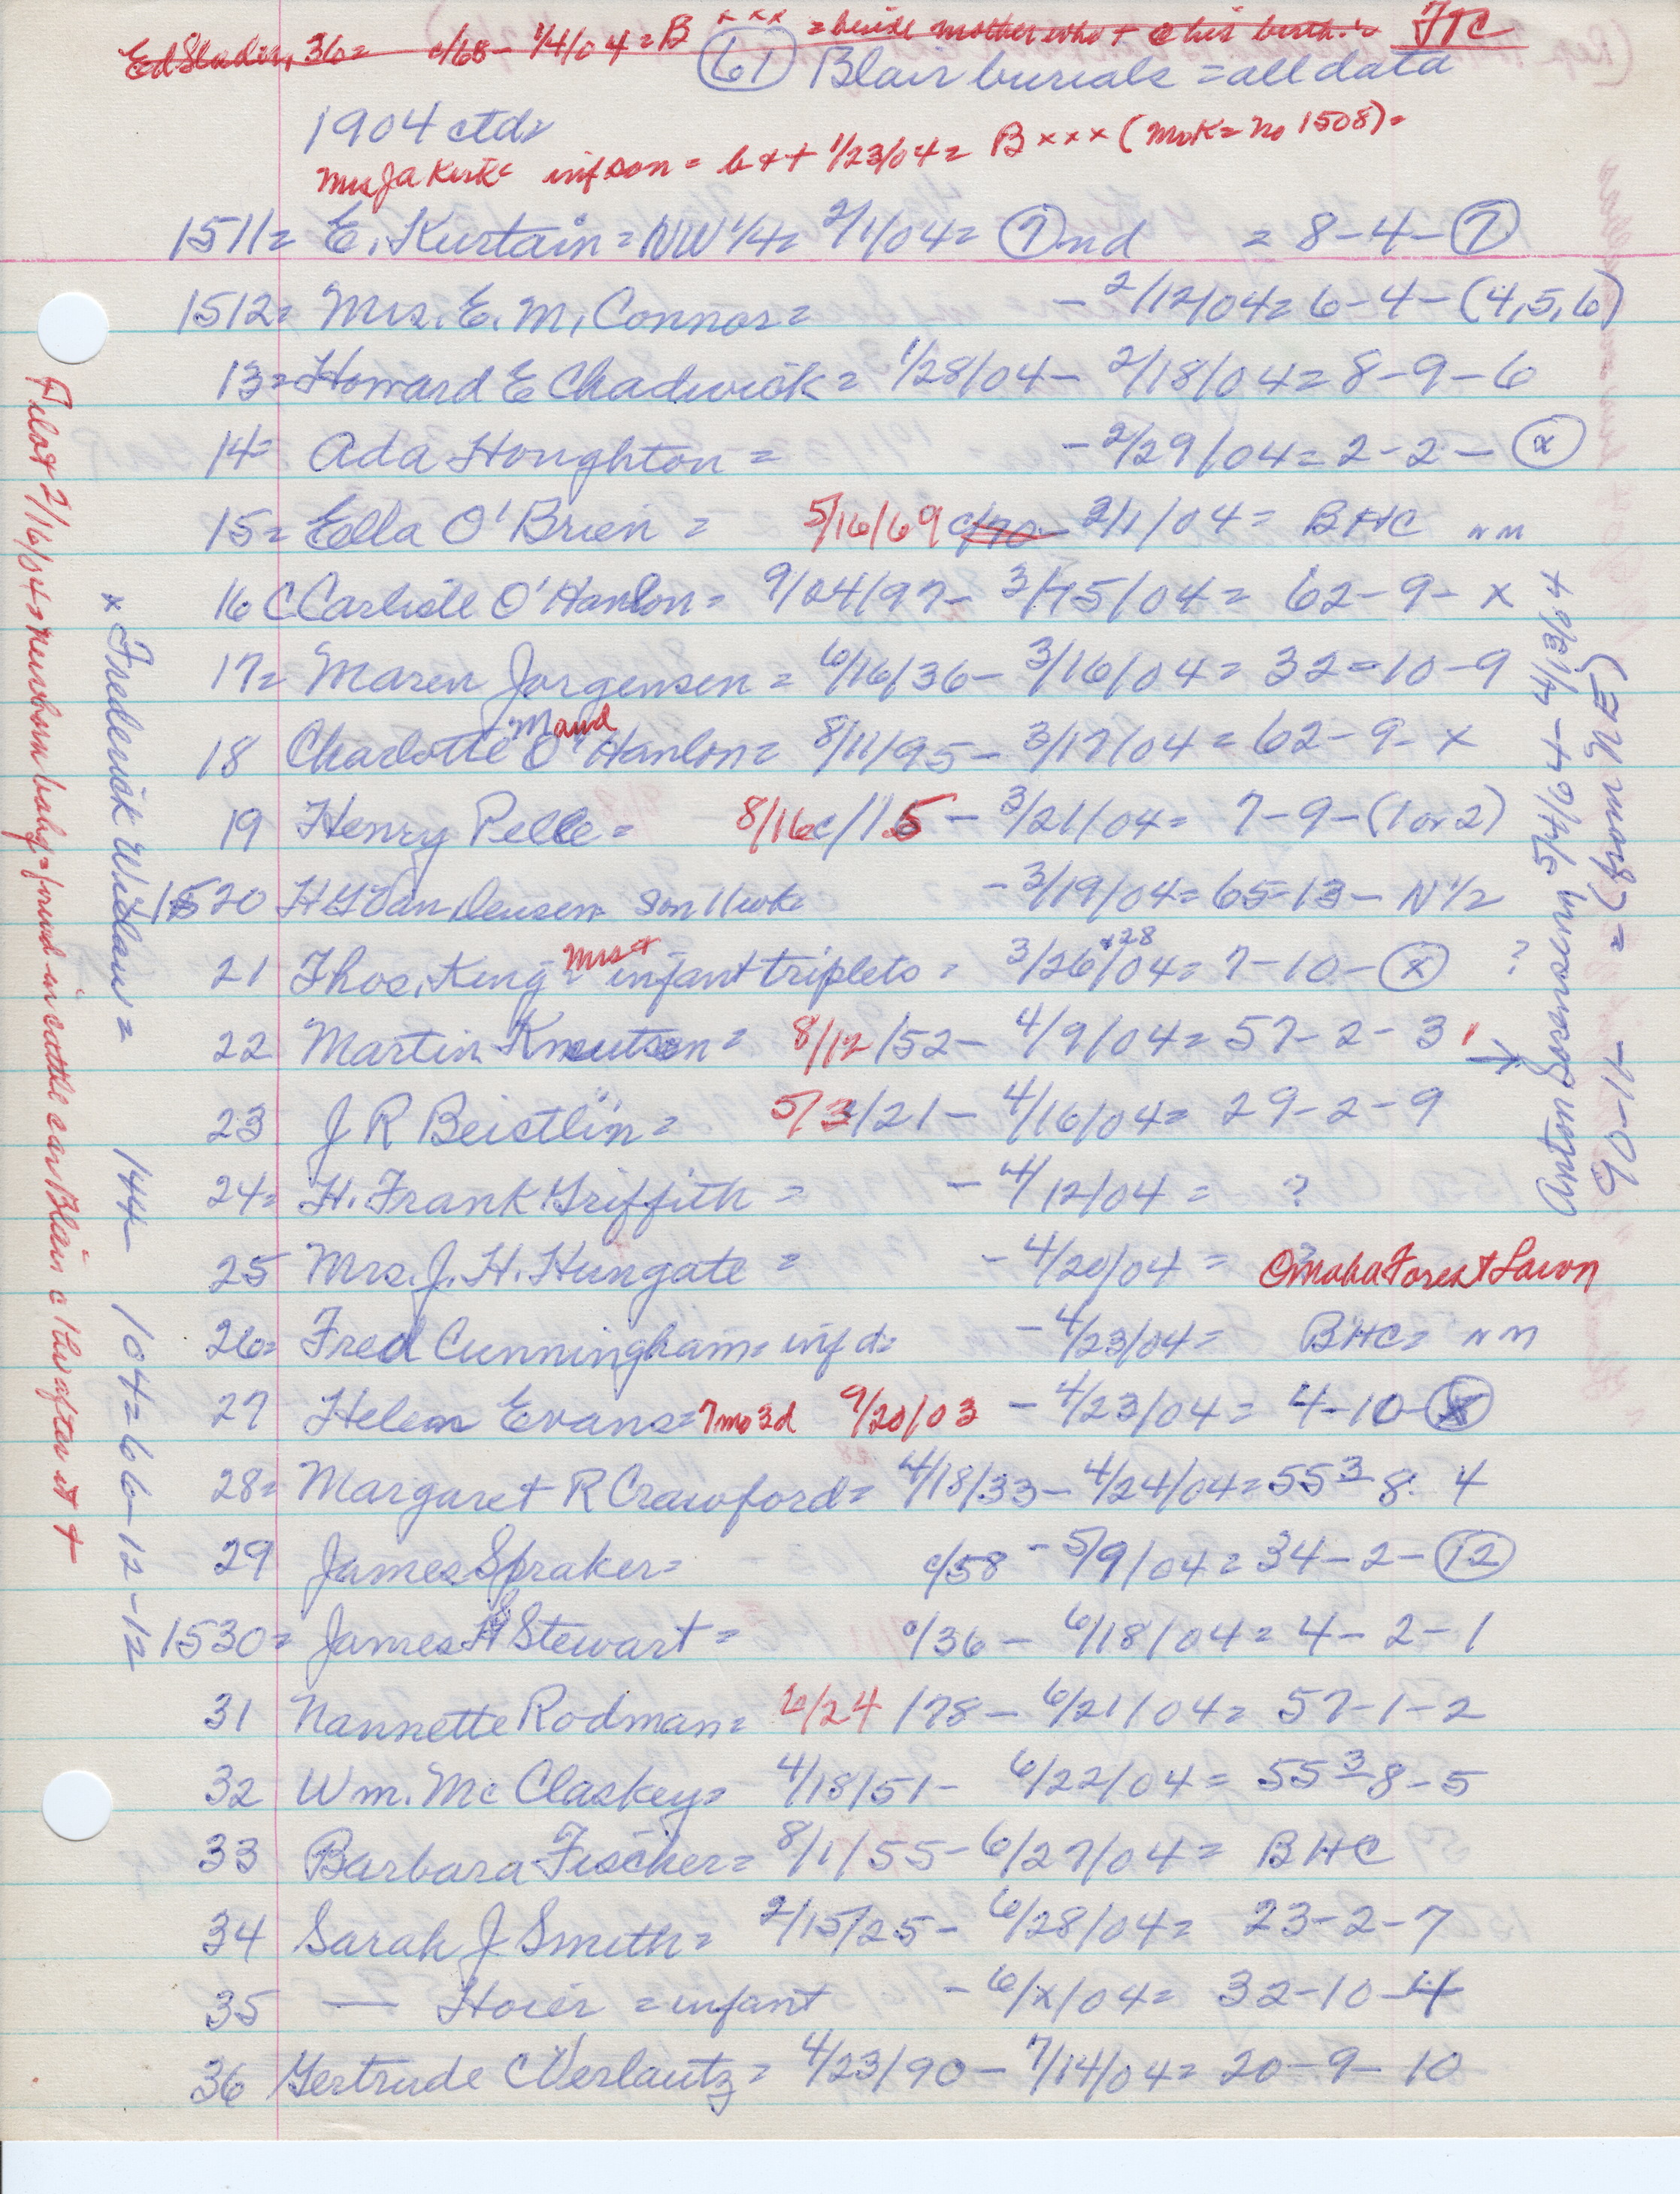 Ed Slader, 36= c/68- 1/4/04=B xxx =beside mother who + @ his birth= FTC
(61) Blair burials =all data
1904 ctd=
Mrs JA Kirk= inf son = b & + 1/23/04= B xxx (Mrs K= no 1508)=
1511= E. Kurtain= NW 1/4= 2/1/04= (7) nd = 8-4-(7)
1512= Mrs. E. M. Connor= - 2/12/04= 6-4-(4,5,6)
13= Howard E Chadwick= 1/28/04- 2/18/04= 8-9-6
14= Ada Houghton= - 2/29/04= 2-2-(x)
15= Ella O'Brien= 5/16/69 c/70- 2/1/04= BHC nm
16 C Carlisle O'Hanlon= 9/04/97- 3/15/04= 62-9-x
17= Maren Jorgensen= 6/16/36- 3/16/04= 32=10-9
18 Charlotte Maud O'Hanlon= 8/11/95- 3/17/04= 62-9-x
19 Henry Pelle= 8/16 c/15 - 3/21/04= 7-9-(1 or 2)
1520 H G Van Deusen son 11 wk= - 3/19/04= 65=13- N 1/2
21 Thos. King= Mrs + infant triplets= 3/26 +28/04= 7-10-(x) ?
22 Martin Knutson= 8/12/52- 4/9/04= 57-2-3
23 J R Beistlin= 5/3/21- 4/16/04= 29-2-9
24= H. Frank Griffith= - 4/12/04= ?
25 Mrs. J. H. Hungate= - 4/20/04= ? Omaha Forest Lawn
26= Fred Cunningham= inf d= - 4/23/04= BHC= nm
27 Helen Evans= 7mo 3d 9/20/03 - 4/23/04= 4-10-(x)
28= Margaret R Crawford= 4/18/33- 4/24/04= 55 3-8. 4
29 James Spraker= c/58 - 5/9/04= 34-2-(12)
1530= James H Stewart= c/36- 6/18/04= 4-2-1
31 Nannette Rodman= 6/24/78- 6/21/04= 57-1-2
32 Wm. McClaskey= 4/18/51- 6/22/04= 55 3-8-5
33 Barbara Fischer= 8/1/55- 6/27/04= BHC
34 Sarah J Smith= 2/15/25- 6/28/04= 23-2-7
35 — Hoier =infant - 6/x/04= 32-10-4
36 Gertrude C Verlautz= 4/23/90- 7/14/04= 20-9-10
Anton Sorensen 5/4/64- 4/13/04
90-11- =(from NE)
x Frederick Widau= 144 104=66-12-12
Pilot 2/16/04= newborn baby= found in cattle car Blair after it +